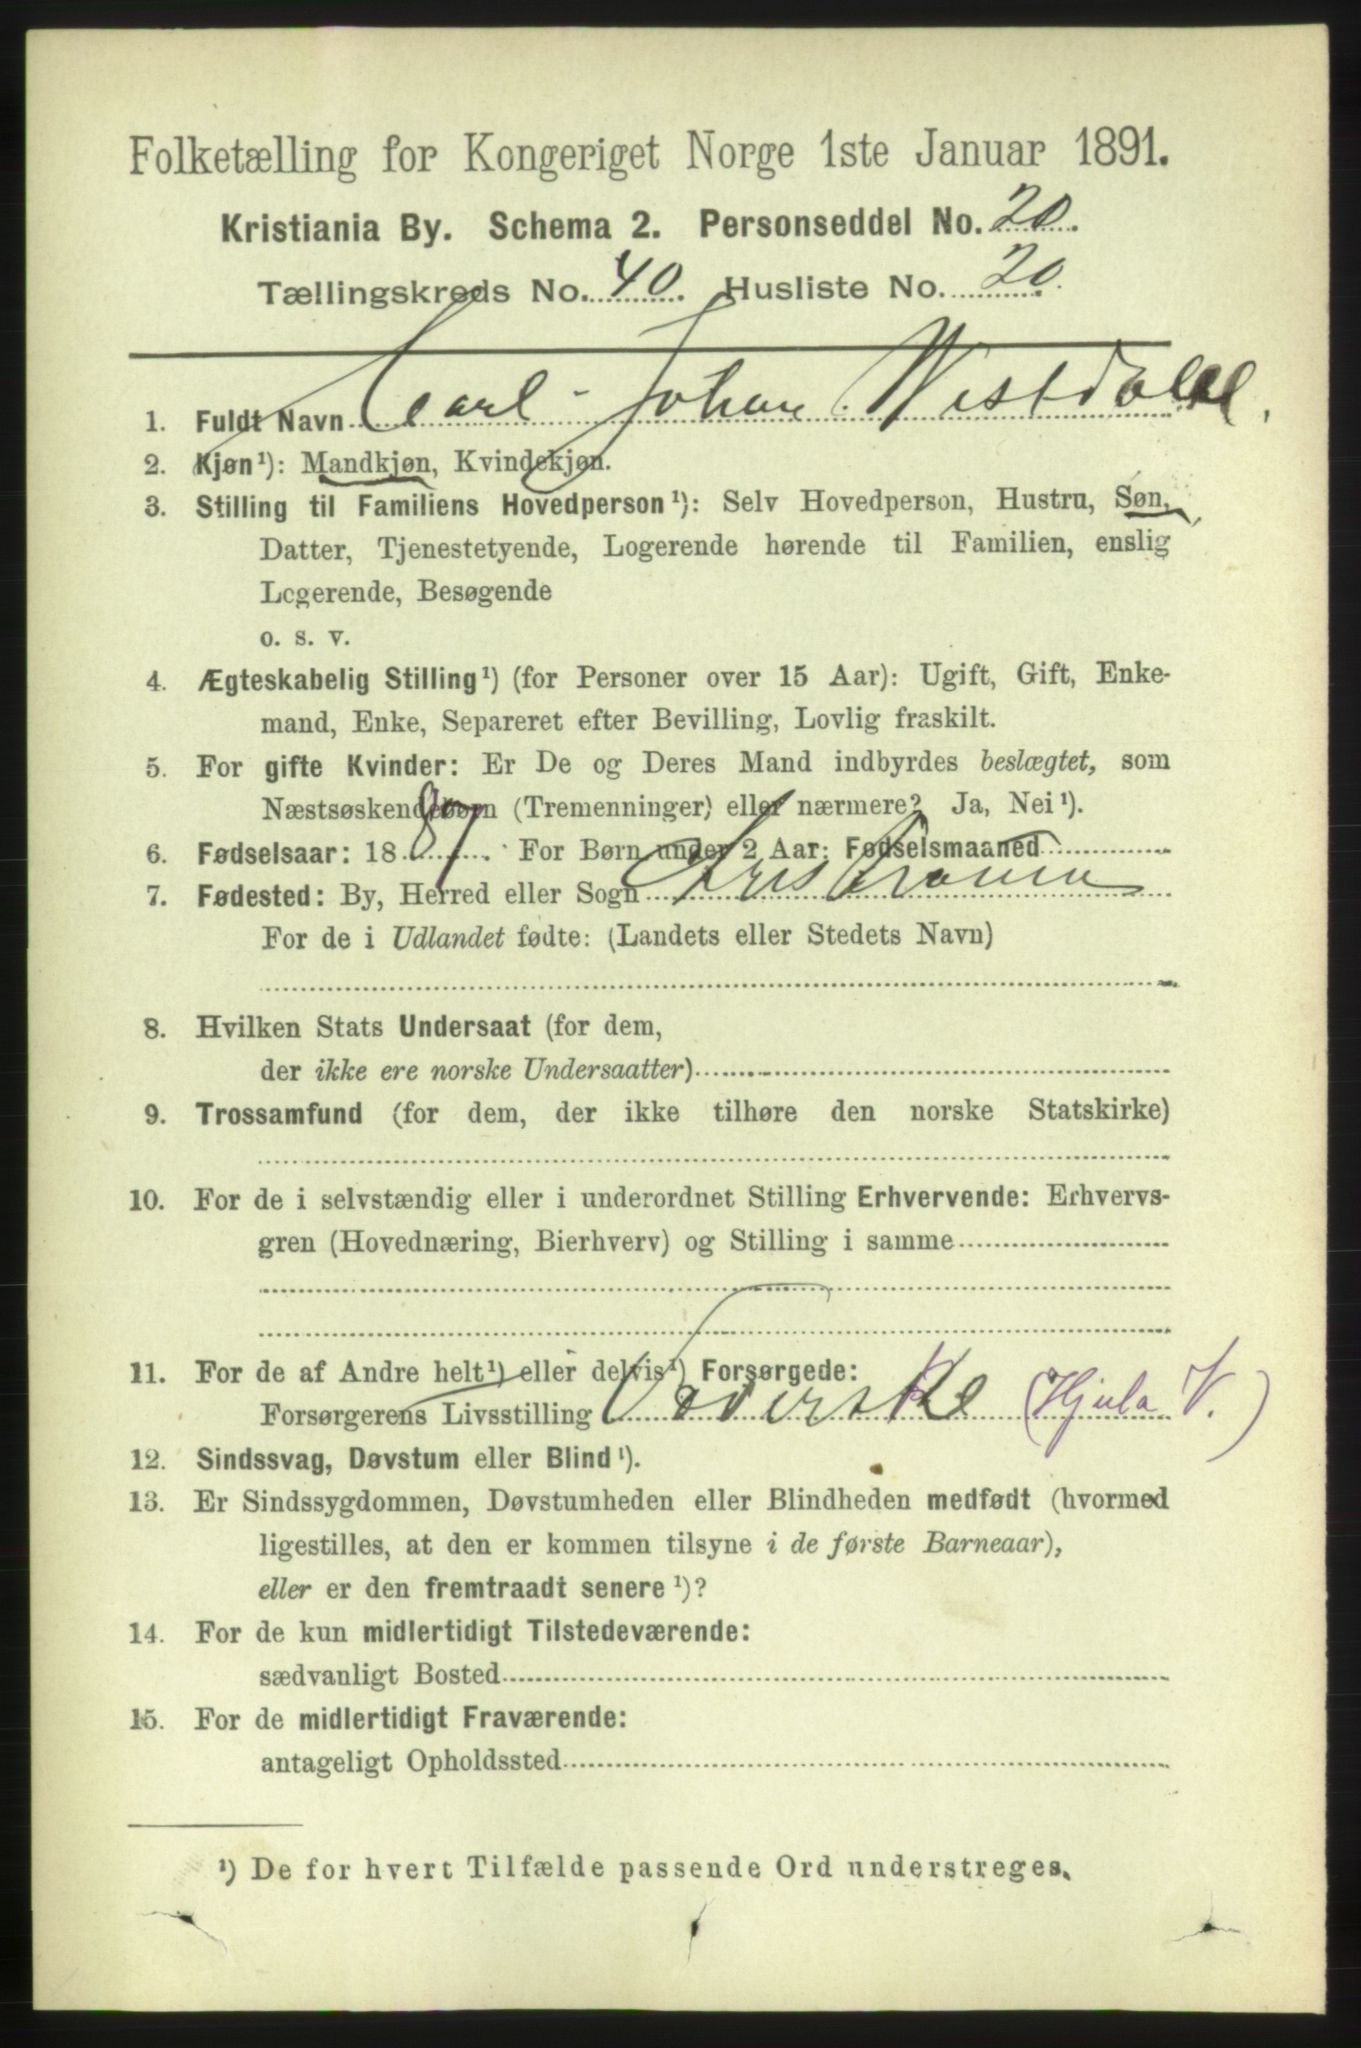 Folketælling for Kongeriget Norge 1ste Januar 1891.
Kristiania By. Schema 2. Personseddel No. 20.
Tællingskreds No. 40. Husliste No. 20.
1. Fuldt Navn Carl Johan Westdahl.
2. Kjøn¹): Mandkjøn, Kvindekjøn.
3. Stilling til Familiens Hovedperson¹): Selv Hovedperson, Hustru, Søn,
Datter, Tjenestetyende, Logerende hørende til Familien, enslig
Logerende, Besøgende
o. s. v.
4. Ægteskabelig Stilling¹) (for Personer over 15 Aar): Ugift, Gift, Enke-
mand, Enke, Separeret efter Bevilling, Lovlig fraskilt.
5. For gifte Kvinder: Er De og Deres Mand indbyrdes beslægtet, som
Næstsøskendebørn (Tremenninger) eller nærmere? Ja, Nei¹).
6. Fødselsaar: 1887. For Børn under 2 Aar: Fødselsmaaned
7. Fødested: By, Herred eller Sogn Kristiania
For de i Udlandet fødte: (Landets eller Stedets Navn)
8. Hvilken Stats Undersaat (for dem,
der ikke ere norske Undersaatter)
9. Trossamfund (for dem, der ikke tilhøre den norske Statskirke)
10. For de i selvstændig eller i underordnet Stilling Erhvervende: Erhvervs-
gren (Hovednæring, Bierhverv) og Stilling i samme
11. For de af Andre helt¹) eller delvis¹) Forsørgede:
Forsørgerens Livsstilling Væverske (Hjula V.)
12. Sindssvag, Døvstum eller Blind¹).
13. Er Sindssygdommen, Døvstumheden eller Blindheden medfødt (hvormed
ligestilles, at den er kommen tilsyne i de første Barneaar),
eller er den fremtraadt senere¹)?
14. For de kun midlertidigt Tilstedeværende:
sædvanligt Bosted
15. For de midlertidigt Fraværende:
antageligt Opholdssted
¹) De for hvert Tilfælde passende Ord understreges.